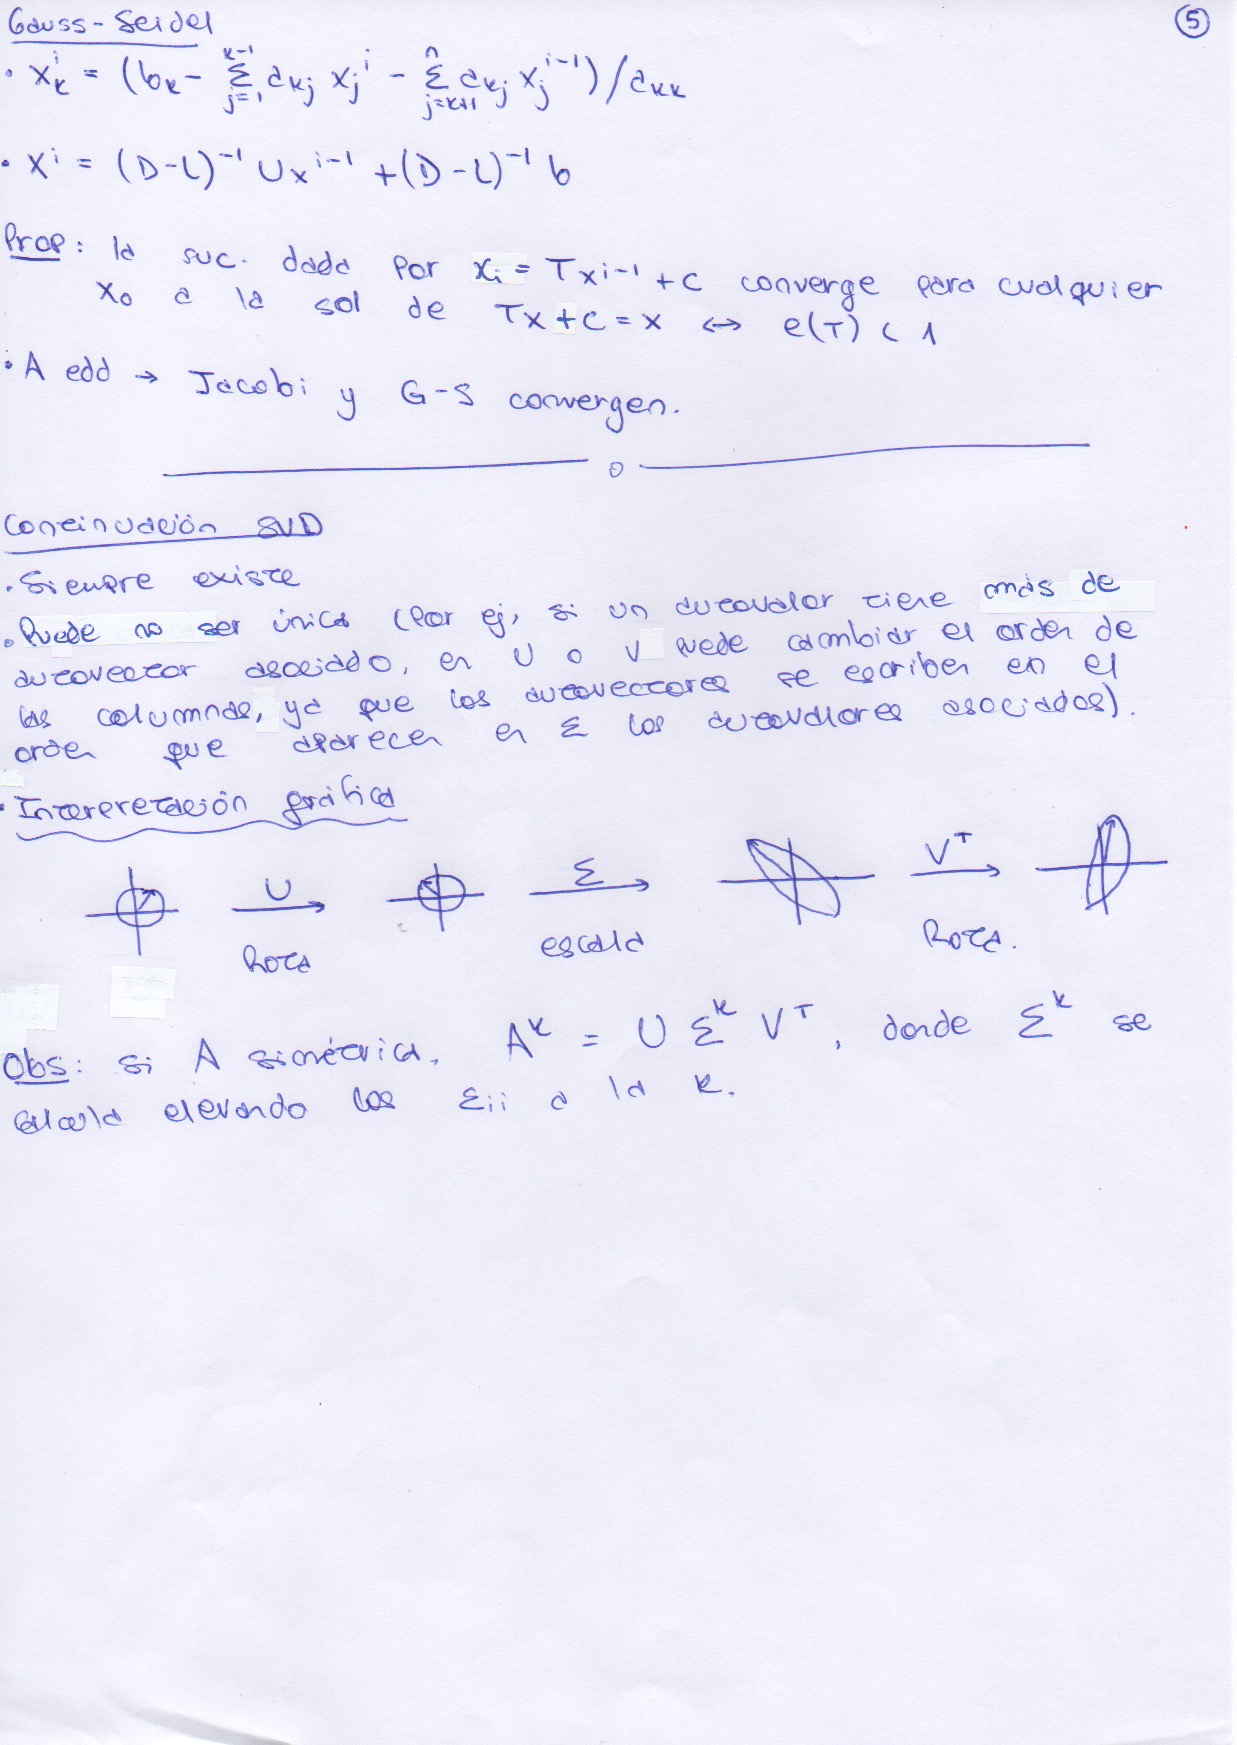 Gauss-Seidel
5
• x_k^i = (b_k - Σ_{j=1}^{k-1} a_kj x_j^i - Σ_{j=k+1}^{n} a_kj x_j^{i-1}) / a_kk
• x^i = (D-L)^{-1} U x^{i-1} + (D-L)^{-1} b
Prop: la suc. dada por x_i = T x^{i-1} + c converge para cualquier
x_0 a la sol de Tx+c=x ↔ ρ(T) < 1
• A edd → Jacobi y G-S convergen.
Continuación SVD
• Siempre existe
• Puede no ser única (Por ej, si un autovalor tiene más de
autovector asociado, en U o V puede cambiar el orden de
las columnas, ya que los autovectores se escriben en el
orden que aparecen en Σ los autovalores asociados).
• Interpretación gráfica
U Σ V^T
Rota escala Rota.
Obs: si A simétrica, A^k = U Σ^k V^T, donde Σ^k se
calcula elevando los Σ_ii a la k.